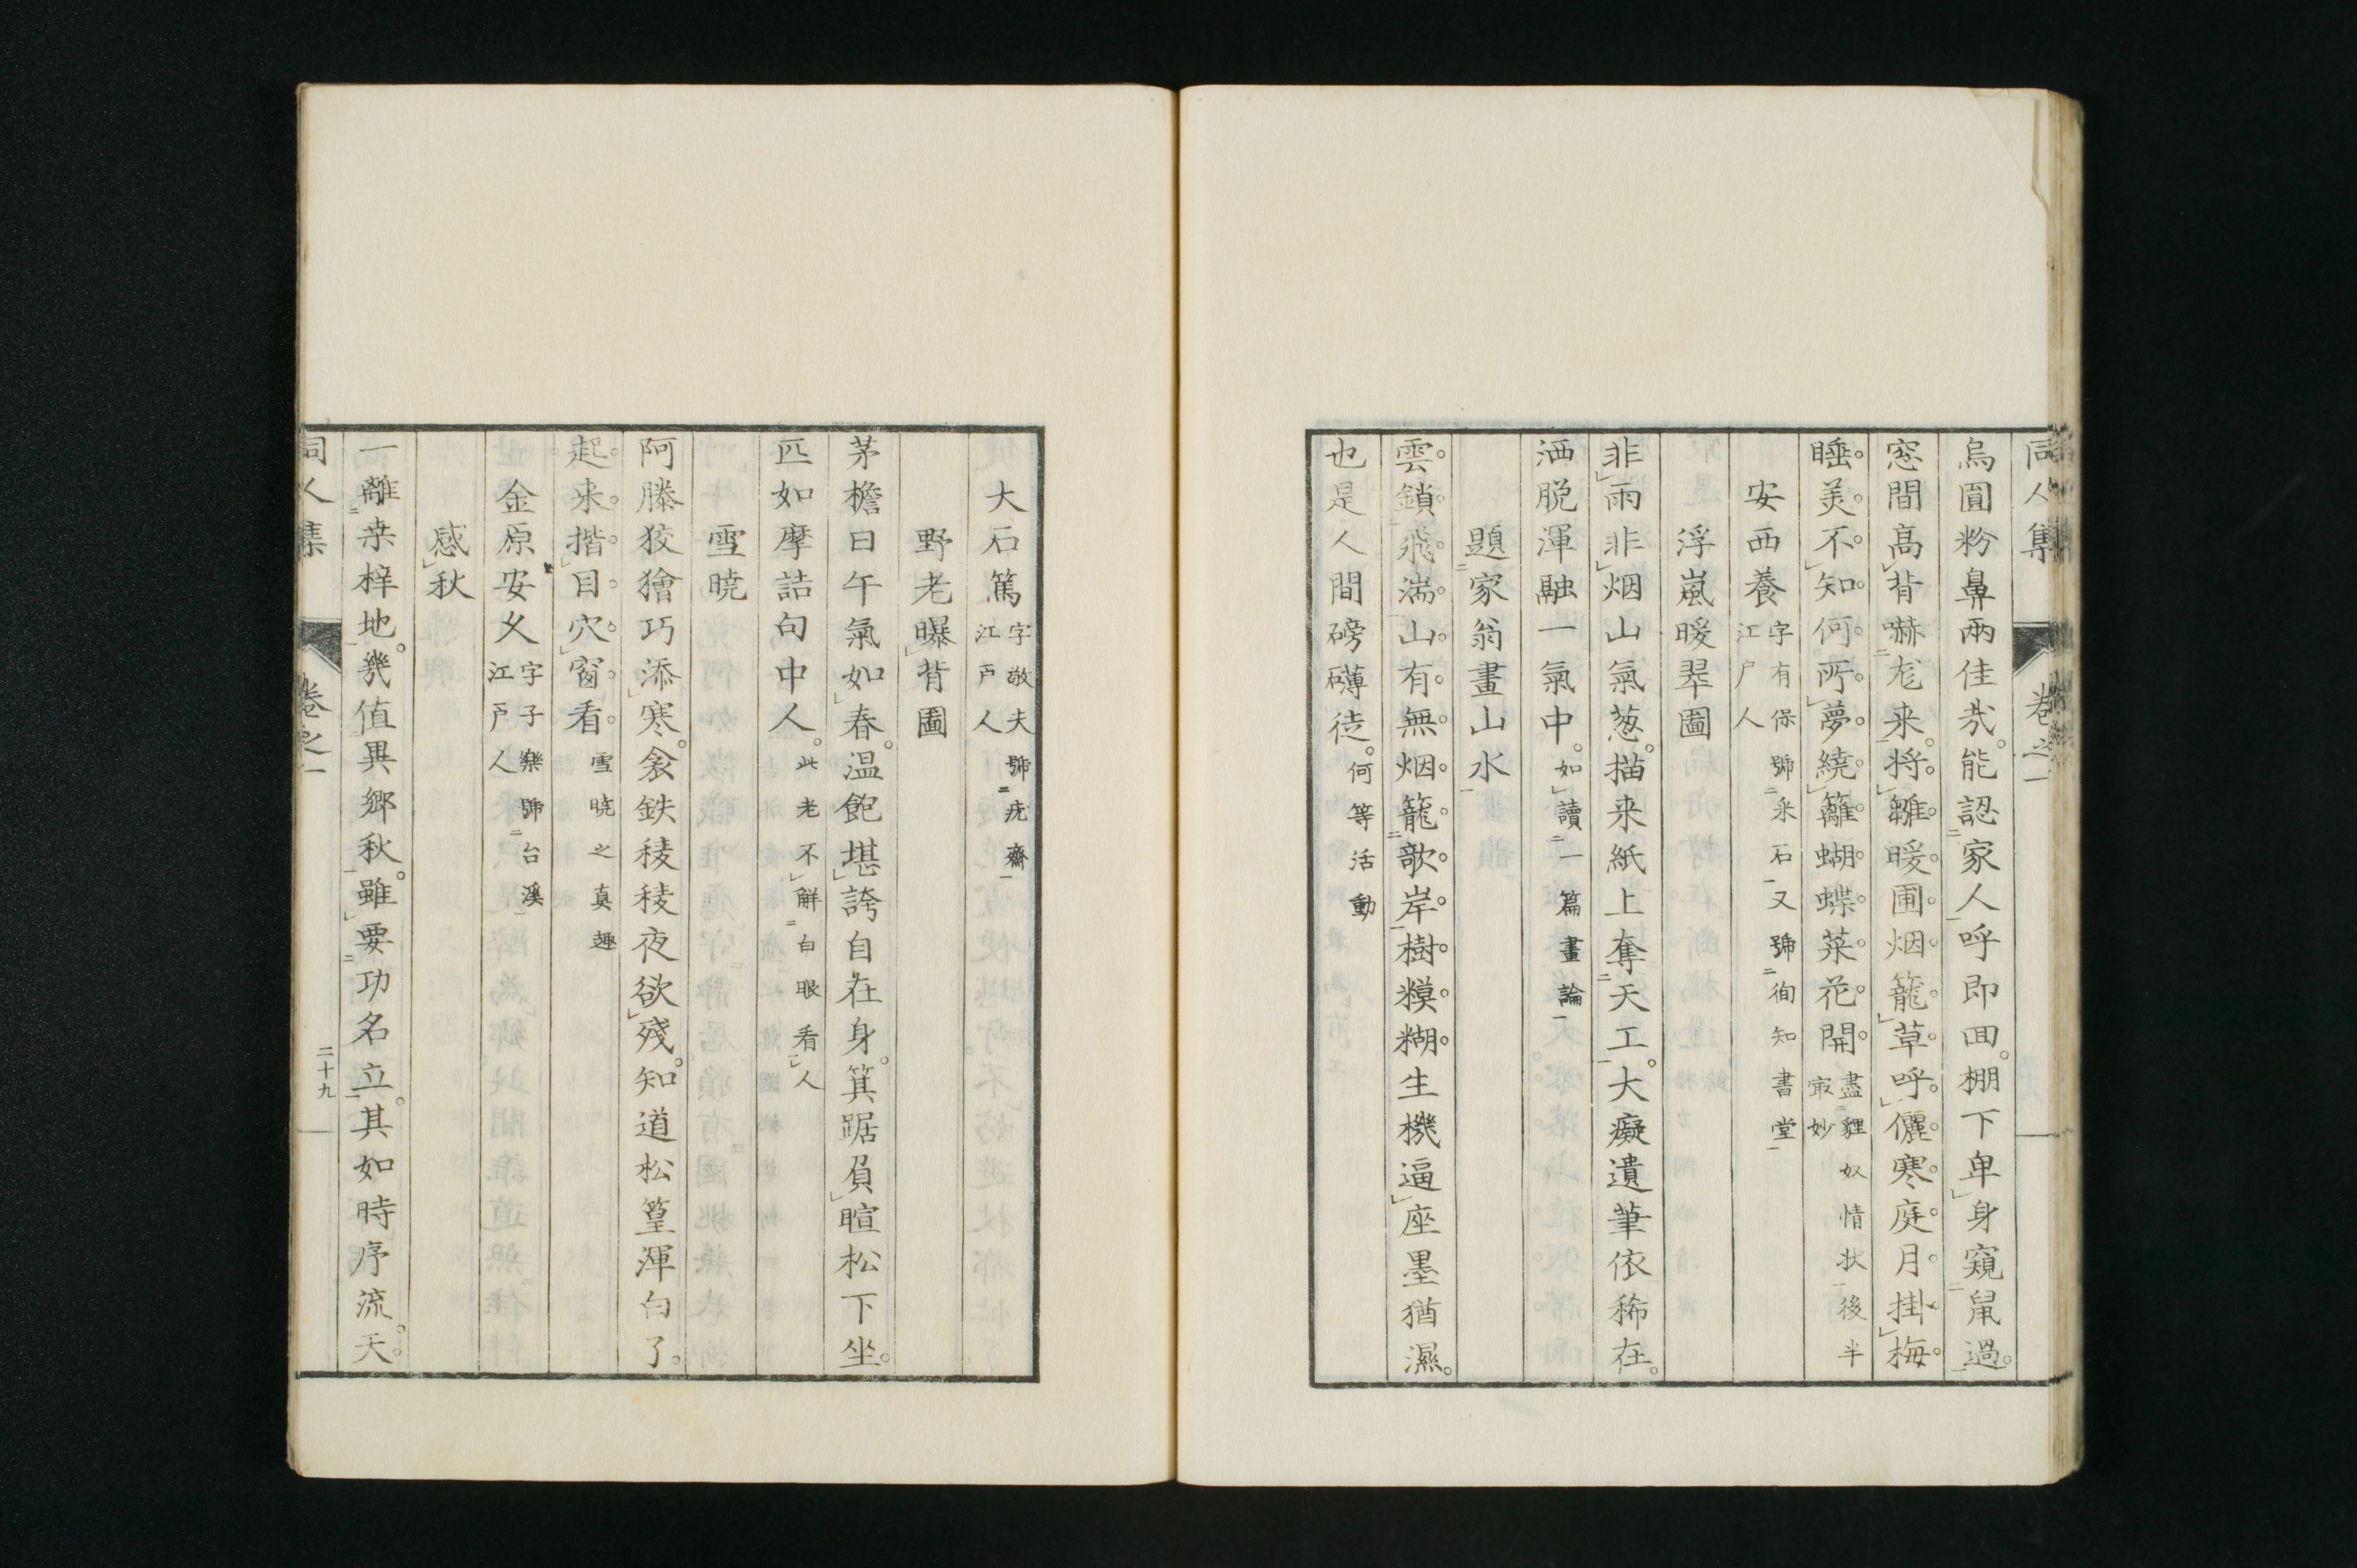 同人集 卷之一
烏圓粉鼻兩佳哉。能認家人呼即回。棚下卑身窺鼠過。
窓間高背嚇尨来。將雛暖圃烟籠草。呼儷寒庭月掛梅
睡美不知何所夢繞籬蝴蝶菜花開 盡貍奴情状後半
㝡妙
安西養 字有保號釆石又號徇知書堂
江戸人
浮嵐暖翠圖
非雨非烟山氣葱。描来紙上奪天工。大癡遺筆依稀在。
洒脱渾融一氣中。如讀一篇畫論
題家翁畫山水
雲鎖飛湍山有無烟籠歌岸樹糢糊生機逼座墨猶濕。
也是人間磅礴徒。何等活動
大石篤 字敬夫號疣齋
江戸人
野老曝背圖
茅檐日午氣如春。温飽堪誇自在身。箕踞負暄松下坐。
匹如摩詰句中人。此老不解白眼看人
雪曉
阿滕狡獪巧添寒。衾鉄稜稜夜欲殘。知道松篁渾白了。
起来揩目穴窗看。雪曉之真趣
金原安乂 字子樂號台溪
江戸人
感秋
一離桒梓地。幾值異郷秋。雖要功名立。其如時序流。天
同人集 卷之一 二十九